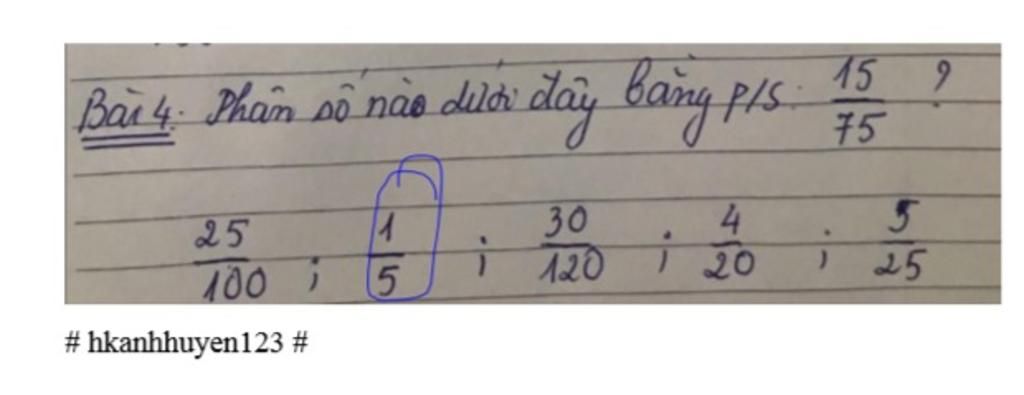 Bài 4: Phân số nào dưới đây bằng p/s: 15/75 ?
25/100 ; 1/5 ; 30/120 ; 4/20 ; 5/25
# hkanhhuyen123 #